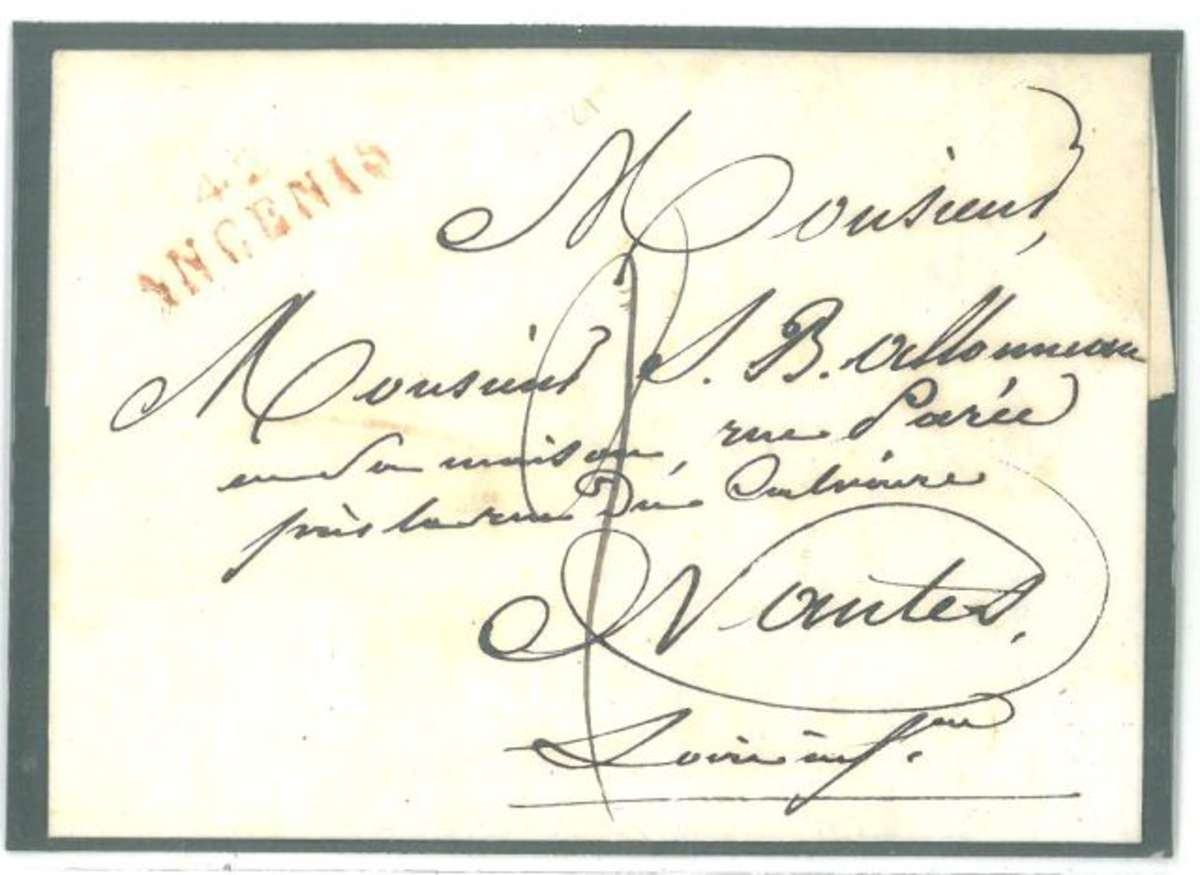 42
ANCENIS
Monsieur,
Monsieur S. B. allonneau
en Sa maison, rue Parée
près la rue Du Calvaire
Nantes,
Loire inf.re